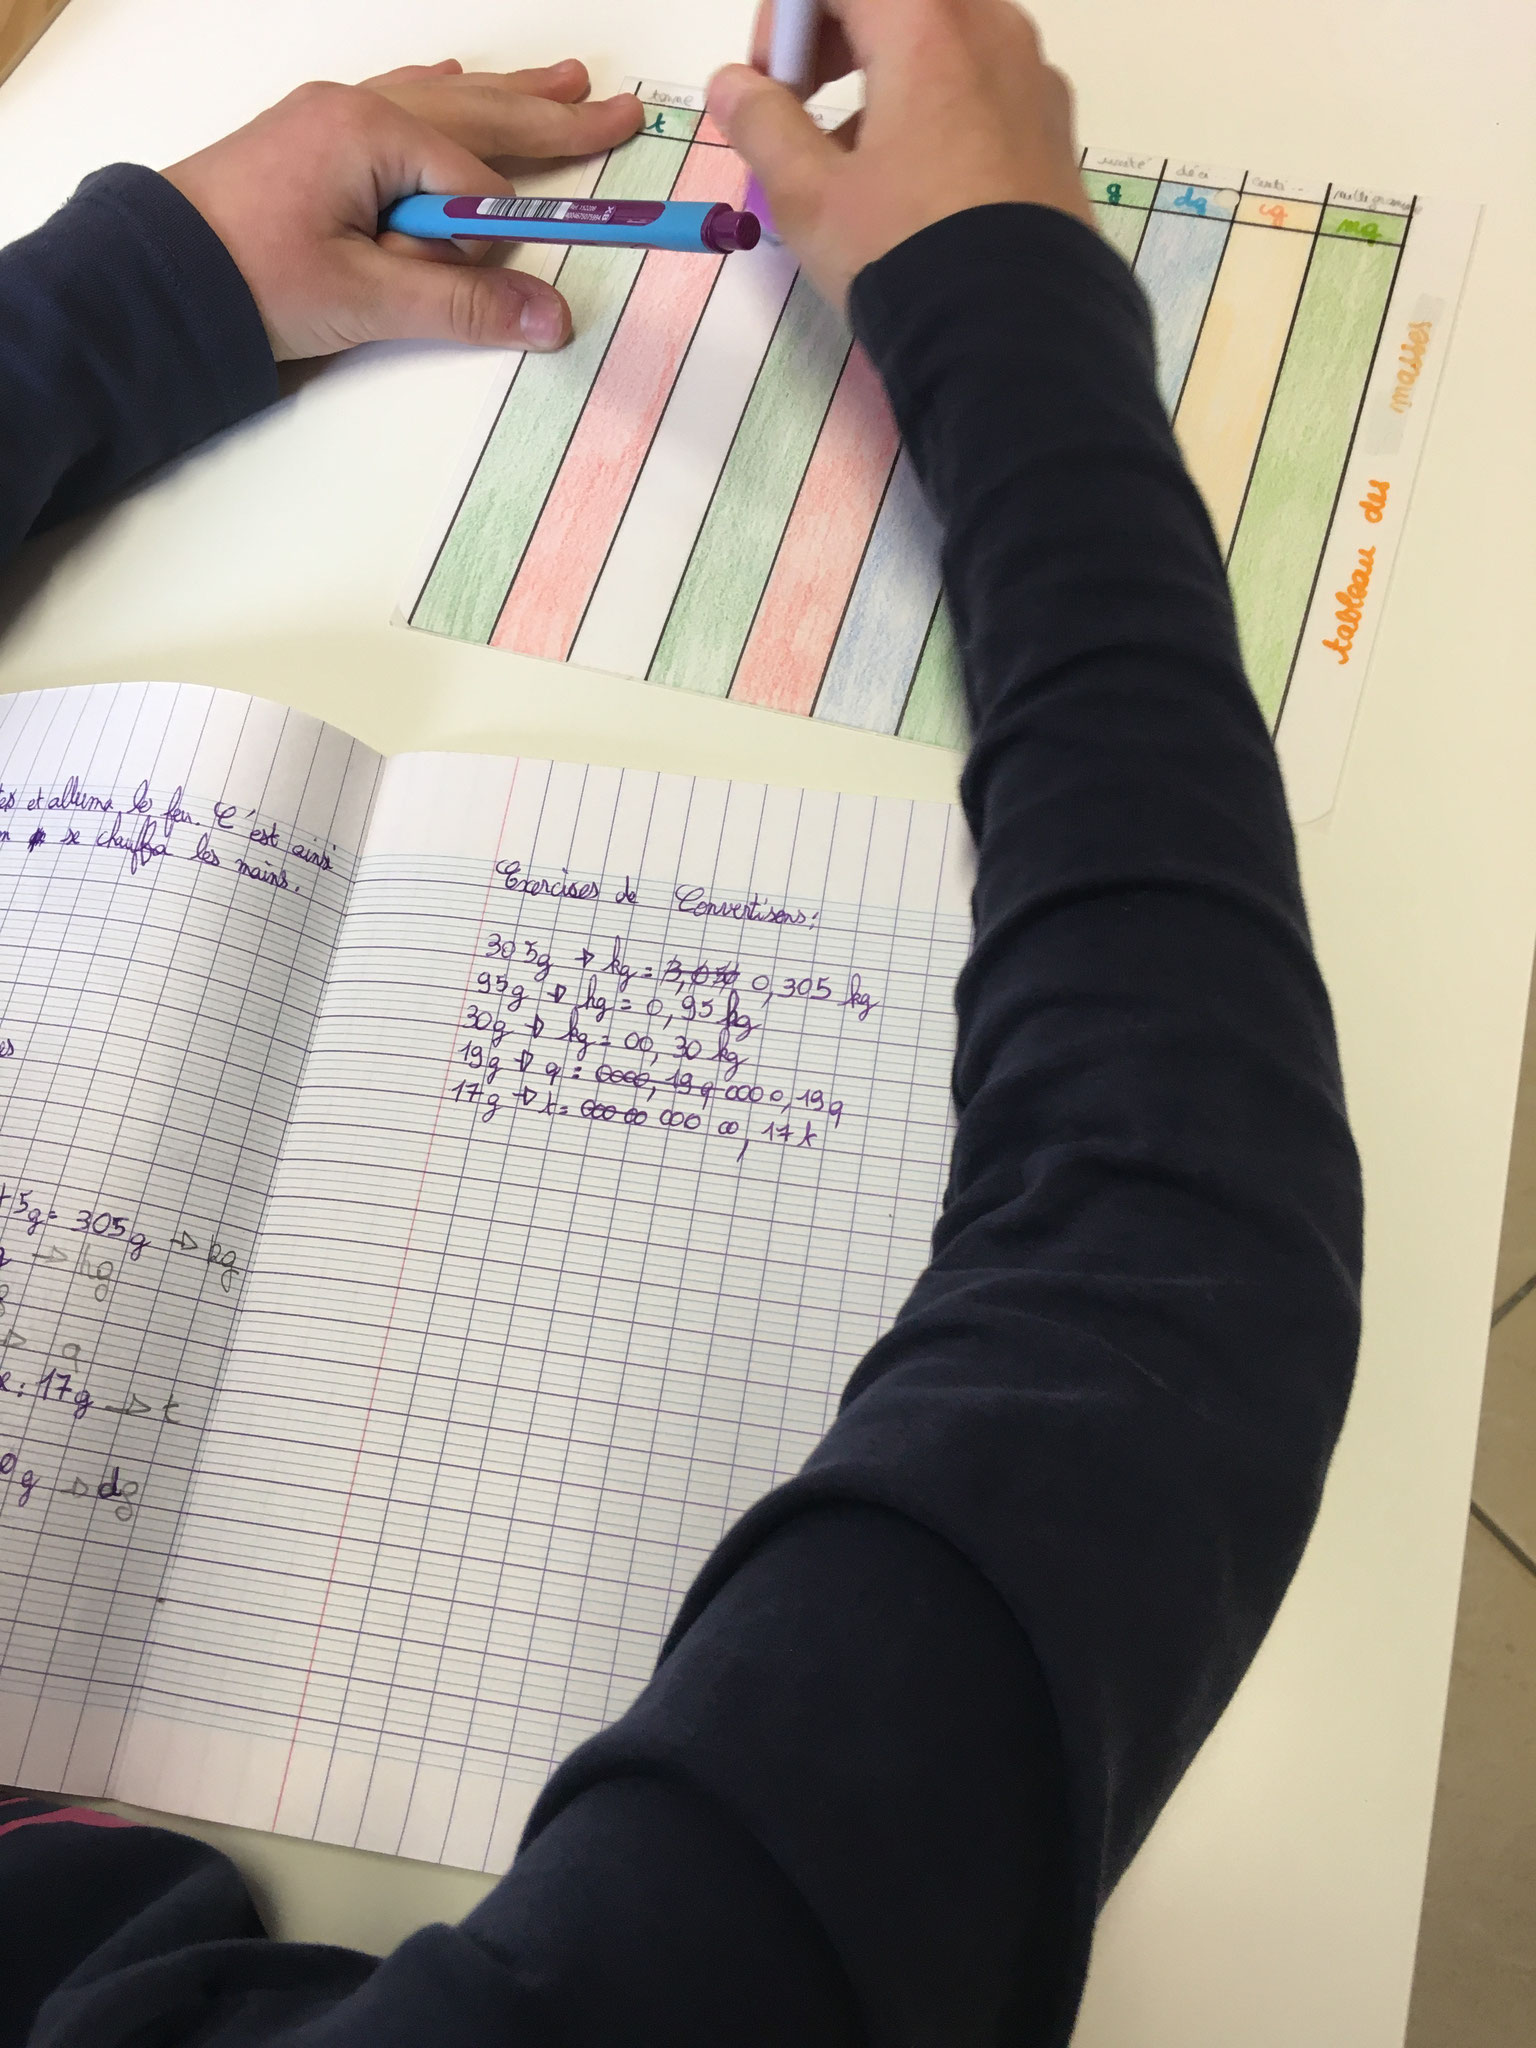 tonne
t
unité déci.. centi.. milligramme
g dg cg mg
tableau des masses
Réf. 152208
et alluma le feu. C'est ainsi
se chauffa les mains.
+5g= 305g → kg
→ hg
→ q
17g → t
0g → dg
Exercises de Convertisons:
305g → kg = 3,050 0,305 kg
95g → hg = 0,95 hg
30g → kg = 00,30 kg
19g → q = 0000,19 q 0000,19q
17g → t = 000 00 000 00,17 t